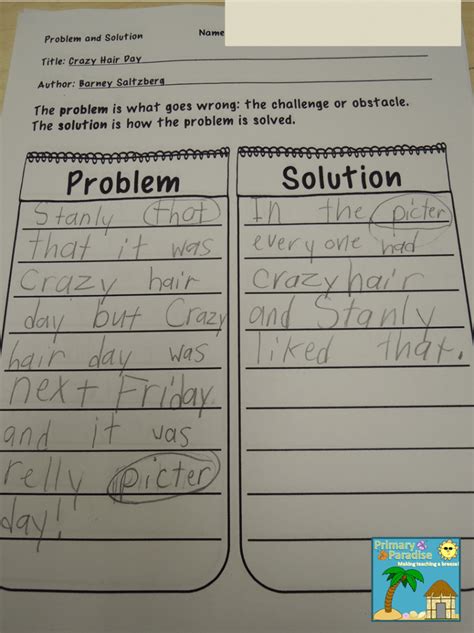 Problem and Solution Name
Title: Crazy Hair Day
Author: Barney Saltzberg
The problem is what goes wrong: the challenge or obstacle.
The solution is how the problem is solved.
Problem
Stanly that
that it was
Crazy hair
day but Crazy
hair day was
next Friday
and it was
relly picter
day!
Solution
In the picter
everyone had
Crazy hair
and Stanly
liked that.
Primary Paradise
Making teaching a breeze!